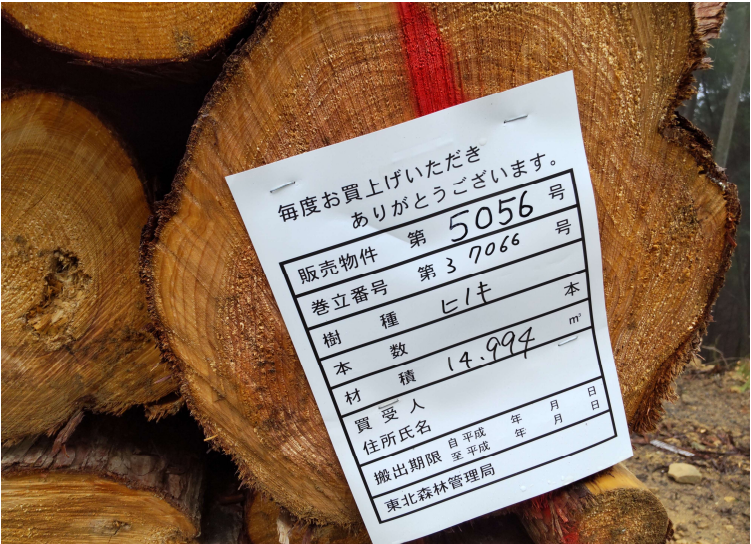 毎度お買上げいただき
ありがとうございます。
販売物件 第 5056 号
巻立番号 第 37066 号
樹種 ヒノキ
本数 本
材積 14.994 m³
買受人
住所氏名
搬出期限 自平成 年 月 日
至平成 年 月 日
東北森林管理局